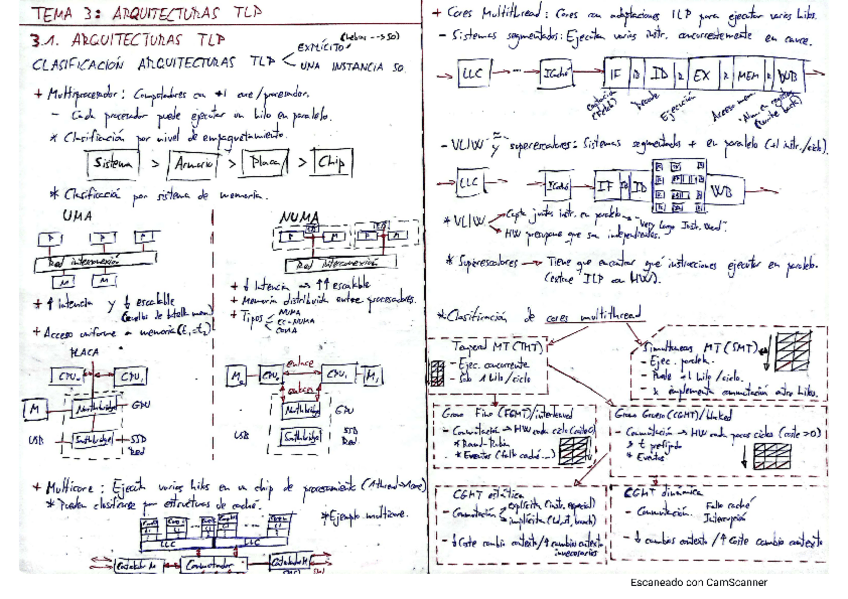 TEMA 3: ARQUITECTURAS TLP
3.1. ARQUITECTURAS TLP
CLASIFICACIÓN ARQUITECTURAS TLP
EXPLÍCITO
UNA INSTANCIA SO.
+ Multiprocesador: Computadores con +1 core/procesador.
- Cada procesador puede ejecutar un hilo en paralelo.
* Clasificación por nivel de empaquetamiento.
Sistema > Armario > Placa > Chip
* Clasificación por sistema de memoria.
UMA
P P P
Red interconexión
M M
+ ↑ latencia y ↓ escalable
+ Acceso uniforme a memoria
PLACA
CPU₀ CPU₁
M Northbridge GPU
USB Southbridge SSD
Red
NUMA
Red interconexión
+ ↓ latencia → ↑↑ escalable
+ Memoria distribuida entre procesadores.
+ Tipos
NUMA
CC-NUMA
COMA
enlace
M₀ CPU₀ CPU₁ M₁
enlace
Northbridge GPU
USB Southbridge SSD
Red
+ Multicore: Ejecuta varios hilos en un chip de procesamiento (1 thread → 1 core)
* Pueden clasificarse por estructuras de caché.
*Ejemplo multicore.
LLC LLC
Controlador M Conmutador Controlador M
+ Cores Multithread: Cores con adaptaciones ILP para ejecutar varios hilos.
- Sistemas segmentados: Ejecutan varias instr. concurrentemente en cauce.
LLC ICaché IF ID EX MEM WB
Decode
Ejecución
Acceso mem.
- VLIW y superescalares: Sistemas segmentados + en paralelo (+1 instr./ciclo).
LLC ICaché IF ID WB
* VLIW
Capta juntas instr. en paralelo "Very Long Instr. Word".
HW presupone que son independientes.
* Superescalares → Tiene que encontrar qué instrucciones ejecutar en paralelo.
(extrae ILP con HW).
*Clasificación de cores multithread
Temporal MT (TMT)
- Ejec. concurrente
- Solo 1 hilo/ciclo
Simultaneous MT (SMT)
- Ejec. paralela.
- Puede +1 hilo/ciclo.
- x implementa conmutación entre hilos.
Grano Fino (FGMT)/interleaved
- Conmutación → HW cada ciclo (coste 0)
* Round-Robin
* Eventos (fallo caché...)
Grano Grueso (CGMT)/blocked
- Conmutación → HW cada pocos ciclos (coste >0)
* t prefijado
* Eventos
CGMT estática
- Conmutación
explícita (instr. especial)
implícita (ld, st, branch)
- ↓ Coste cambio contexto/↑ cambios contexto
innecesarios
CGMT dinámica
- Conmutación.
Fallo caché
Interrupción
- ↓ cambios contexto/↑ Coste cambio contexto
Escaneado con CamScanner